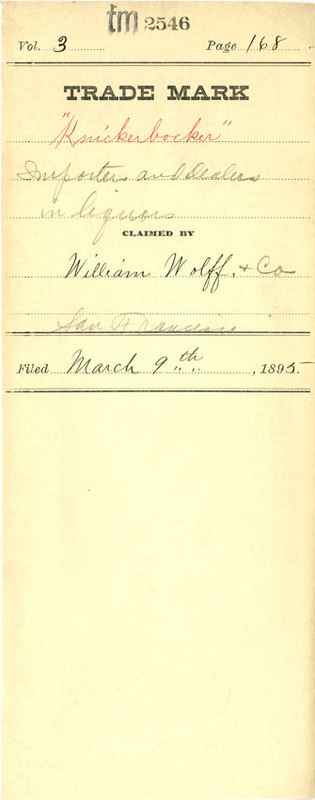 tm 2546
Vol. 3 Page 168
TRADE MARK
"Knickerbocker"
Importers and Dealers
in liquors
CLAIMED BY
William Wolff & Co
San Francisco
Filed March 9th, 1895